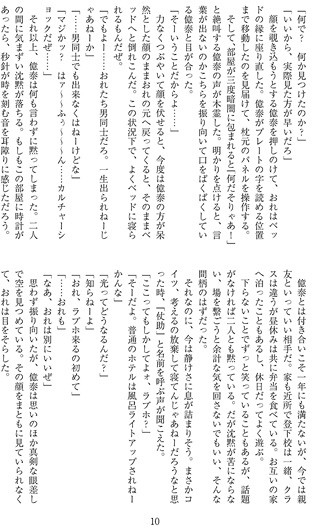 「何で？　何か見つけてたのか？」
「いいから、実際見た方が早いだろ」
顔を覗き込もうとする億泰を押しのけて、おれはベッ
ドの縁に座り直した。億泰がプレートの字を読める位置
まで移動したのを見届けて、枕元のパネルを操作する。
そして、部屋が三度暗闇に包まれると「何だそりゃあ！」
と絶叫する億泰の声が木霊した。明かりを点けると、言
葉が出ないのかこちらを振り向いて口をぱくぱくしてい
る億泰と目が合った。
「そーいうことだからよ……」
力なくつぶやいて顔を伏せると、今度は億泰の方が呆
然とした顔のままおれの元へ戻ってくると、そのままベ
ッドへと倒れこんだ。この状況下で、よくベッドに寝ら
れるもんだぜ。
「でもよー……おれたち男同士だろ。一生出られねーじ
ゃあねーか」
「……男同士でも出来なくはねーけどな」
「マジかッ？　はァ〜〜ふぅ〜〜〜ん……カルチャーシ
ョックだぜ……」
それ以上、億泰は何も言わずに黙ってしまった。二人
の間に気まずい沈黙が落ちる。もしもこの部屋に時計が
あったら、秒針が時を刻む音を耳障りに感じただろう。
億泰とは付き合いこそ一年にも満たないが、今では親
友といっていい相手だ。家も近所で登下校は一緒、クラ
スは違うが昼休みは共に弁当を食べている。お互いの家
へ泊ったこともあるし、休日だってよく遊ぶ。
下らないことでずっと笑っていることもあるが、話題
がなければ二人とも黙っている。だが沈黙が苦にならな
い、場を繋ごうと余計な気を回さないでもいい、そんな
間柄のはずだった。
それなのに、今は静けさに息が詰まりそう。まさかコ
イツ、考えるの放棄して寝てんじゃあねーだろうなと思
った時、「仗助」と名前を呼ぶ声が聞こえた。
「ここってもしかしてよォ、ラブホ？」
「そーだよ。普通のホテルは風呂ライトアップされねー
かんな」
「光ってどうなるんだ？」
「知らねーよ」
「おれ、ラブホ来るの初めて」
「……おれも」
「なあ、おれは別にいいぜ」
思わず振り向いたが、億泰は思いのほか真剣な眼差し
で空を見つめている。その顔をまともに見ていられなく
て、おれは目をそらした。
10